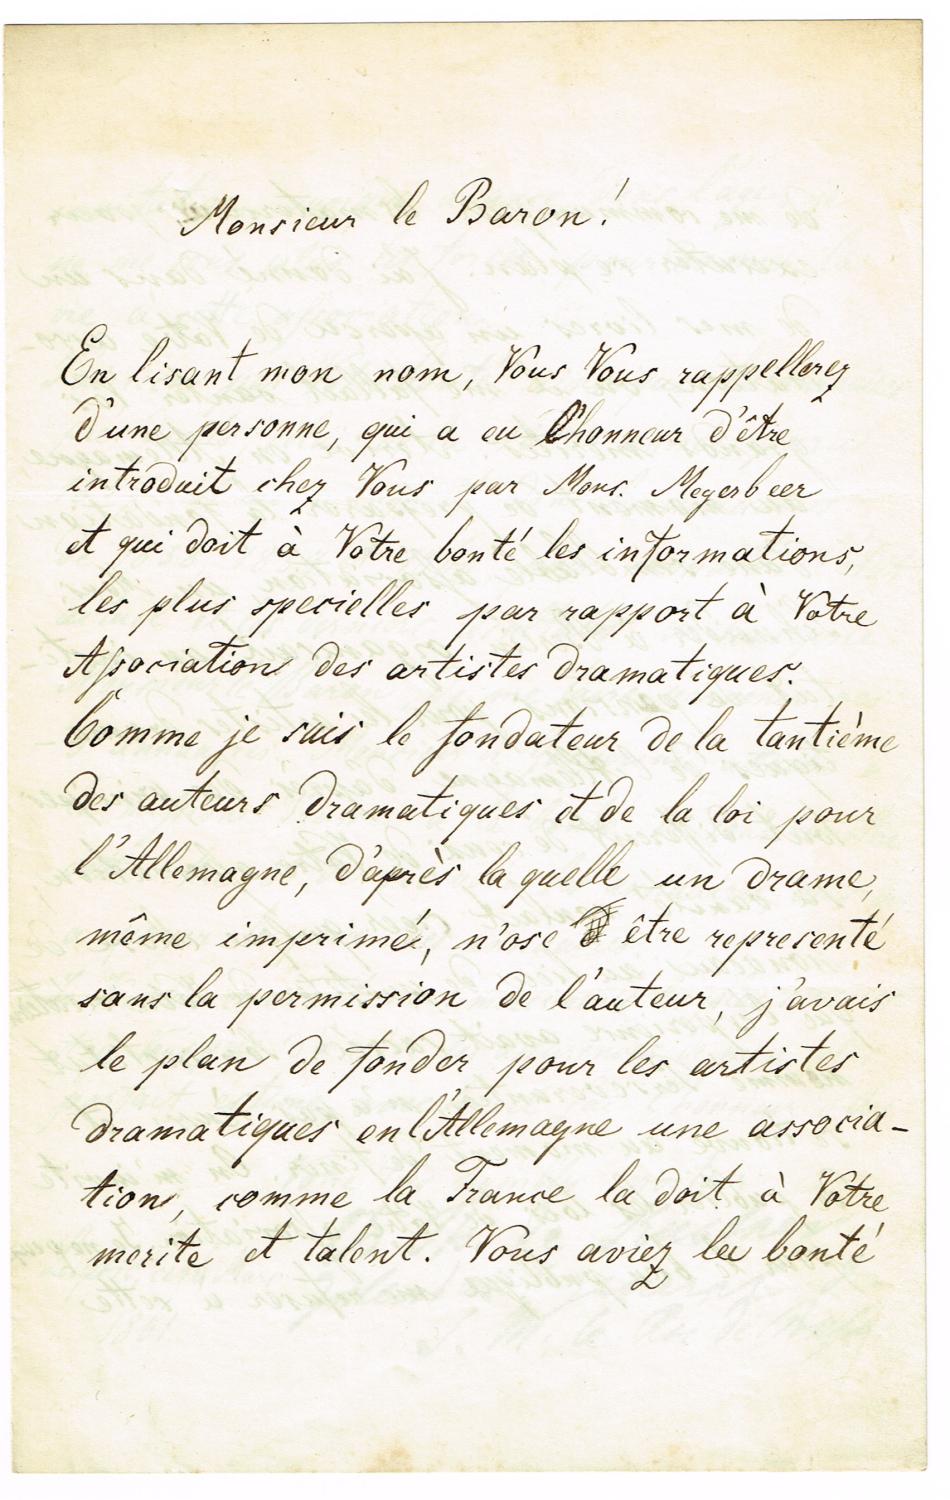 Monsieur le Baron!
En lisant mon nom, Vous Vous rappellerez
d'une personne, qui a eu l'honneur d'être
introduit chez Vous par Mons. Meyerbeer
et qui doit à Votre bonté les informations,
les plus specielles par rapport à Votre
Association des artistes dramatiques.
Comme je suis le fondateur de la tantième
des auteurs dramatiques et de la loi pour
l'Allemagne, d'après laquelle un drame,
même imprimé, n'ose être representé
sans la permission de l'auteur, j'avais
le plan de fonder pour les artistes
dramatiques en l'Allemagne une associa-
tion, comme la France la doit à Votre
merite et talent. Vous aviez la bonté